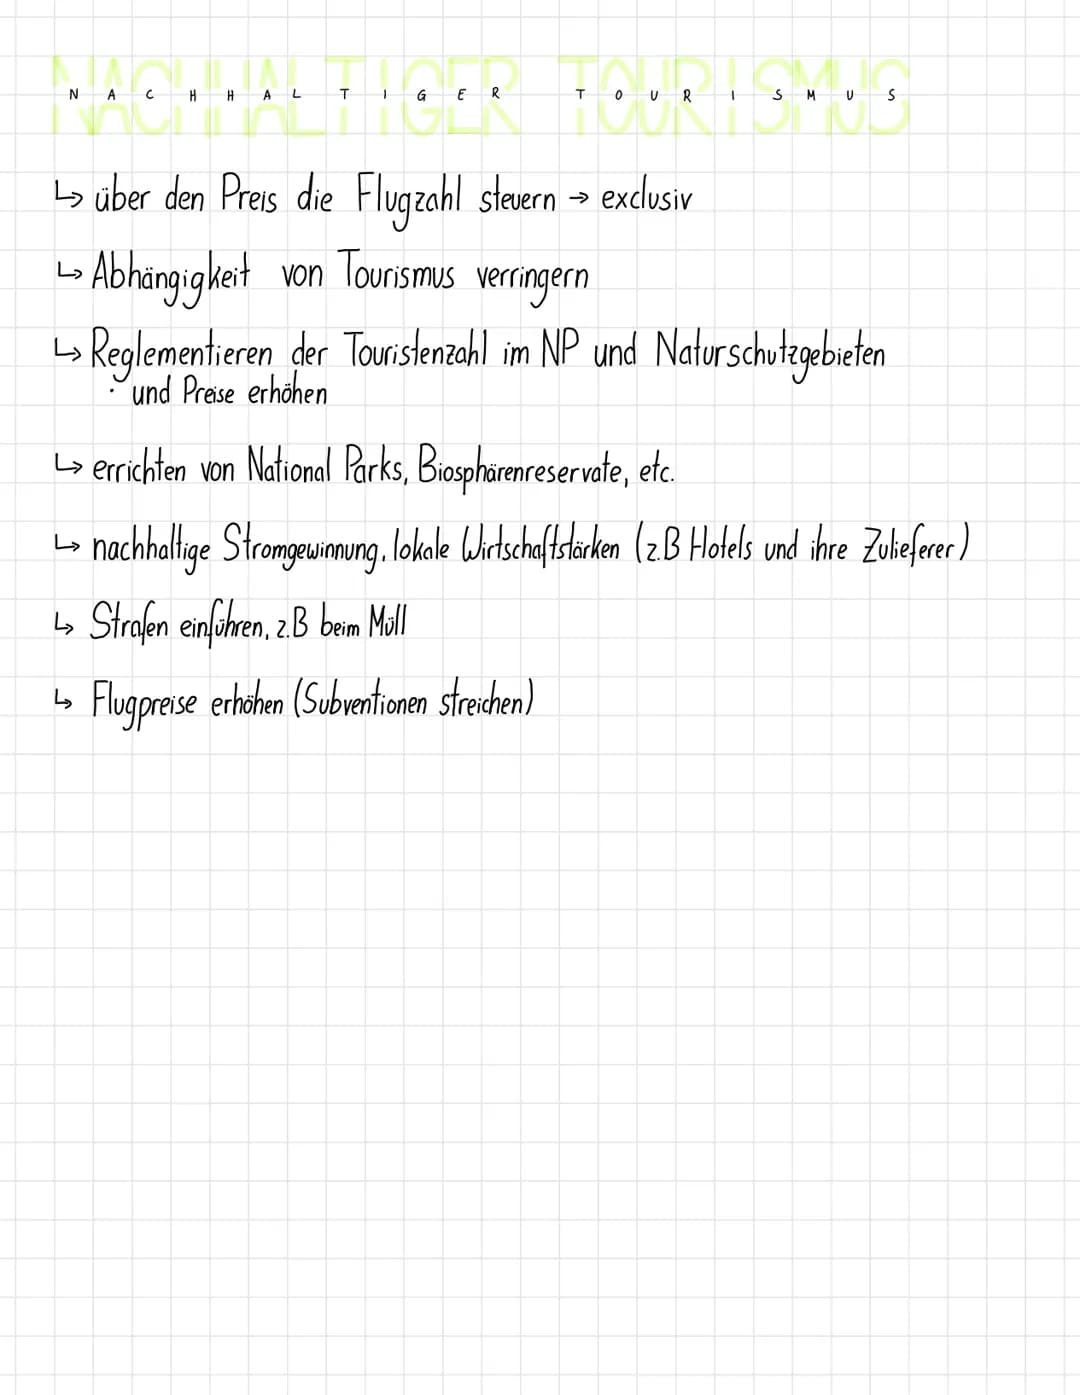 NACHHALTIGER TOURISMUS
↳ über den Preis die Flugzahl steuern → exclusiv
↳ Abhängigkeit von Tourismus verringern
↳ Reglementieren der Touristenzahl im NP und Naturschutzgebieten
· und Preise erhöhen
↳ errichten von National Parks, Biosphärenreservate, etc.
↳ nachhaltige Stromgewinnung, lokale Wirtschaftstärken (z.B Hotels und ihre Zulieferer)
↳ Strafen einführen, z.B beim Müll
↳ Flugpreise erhöhen (Subventionen streichen)